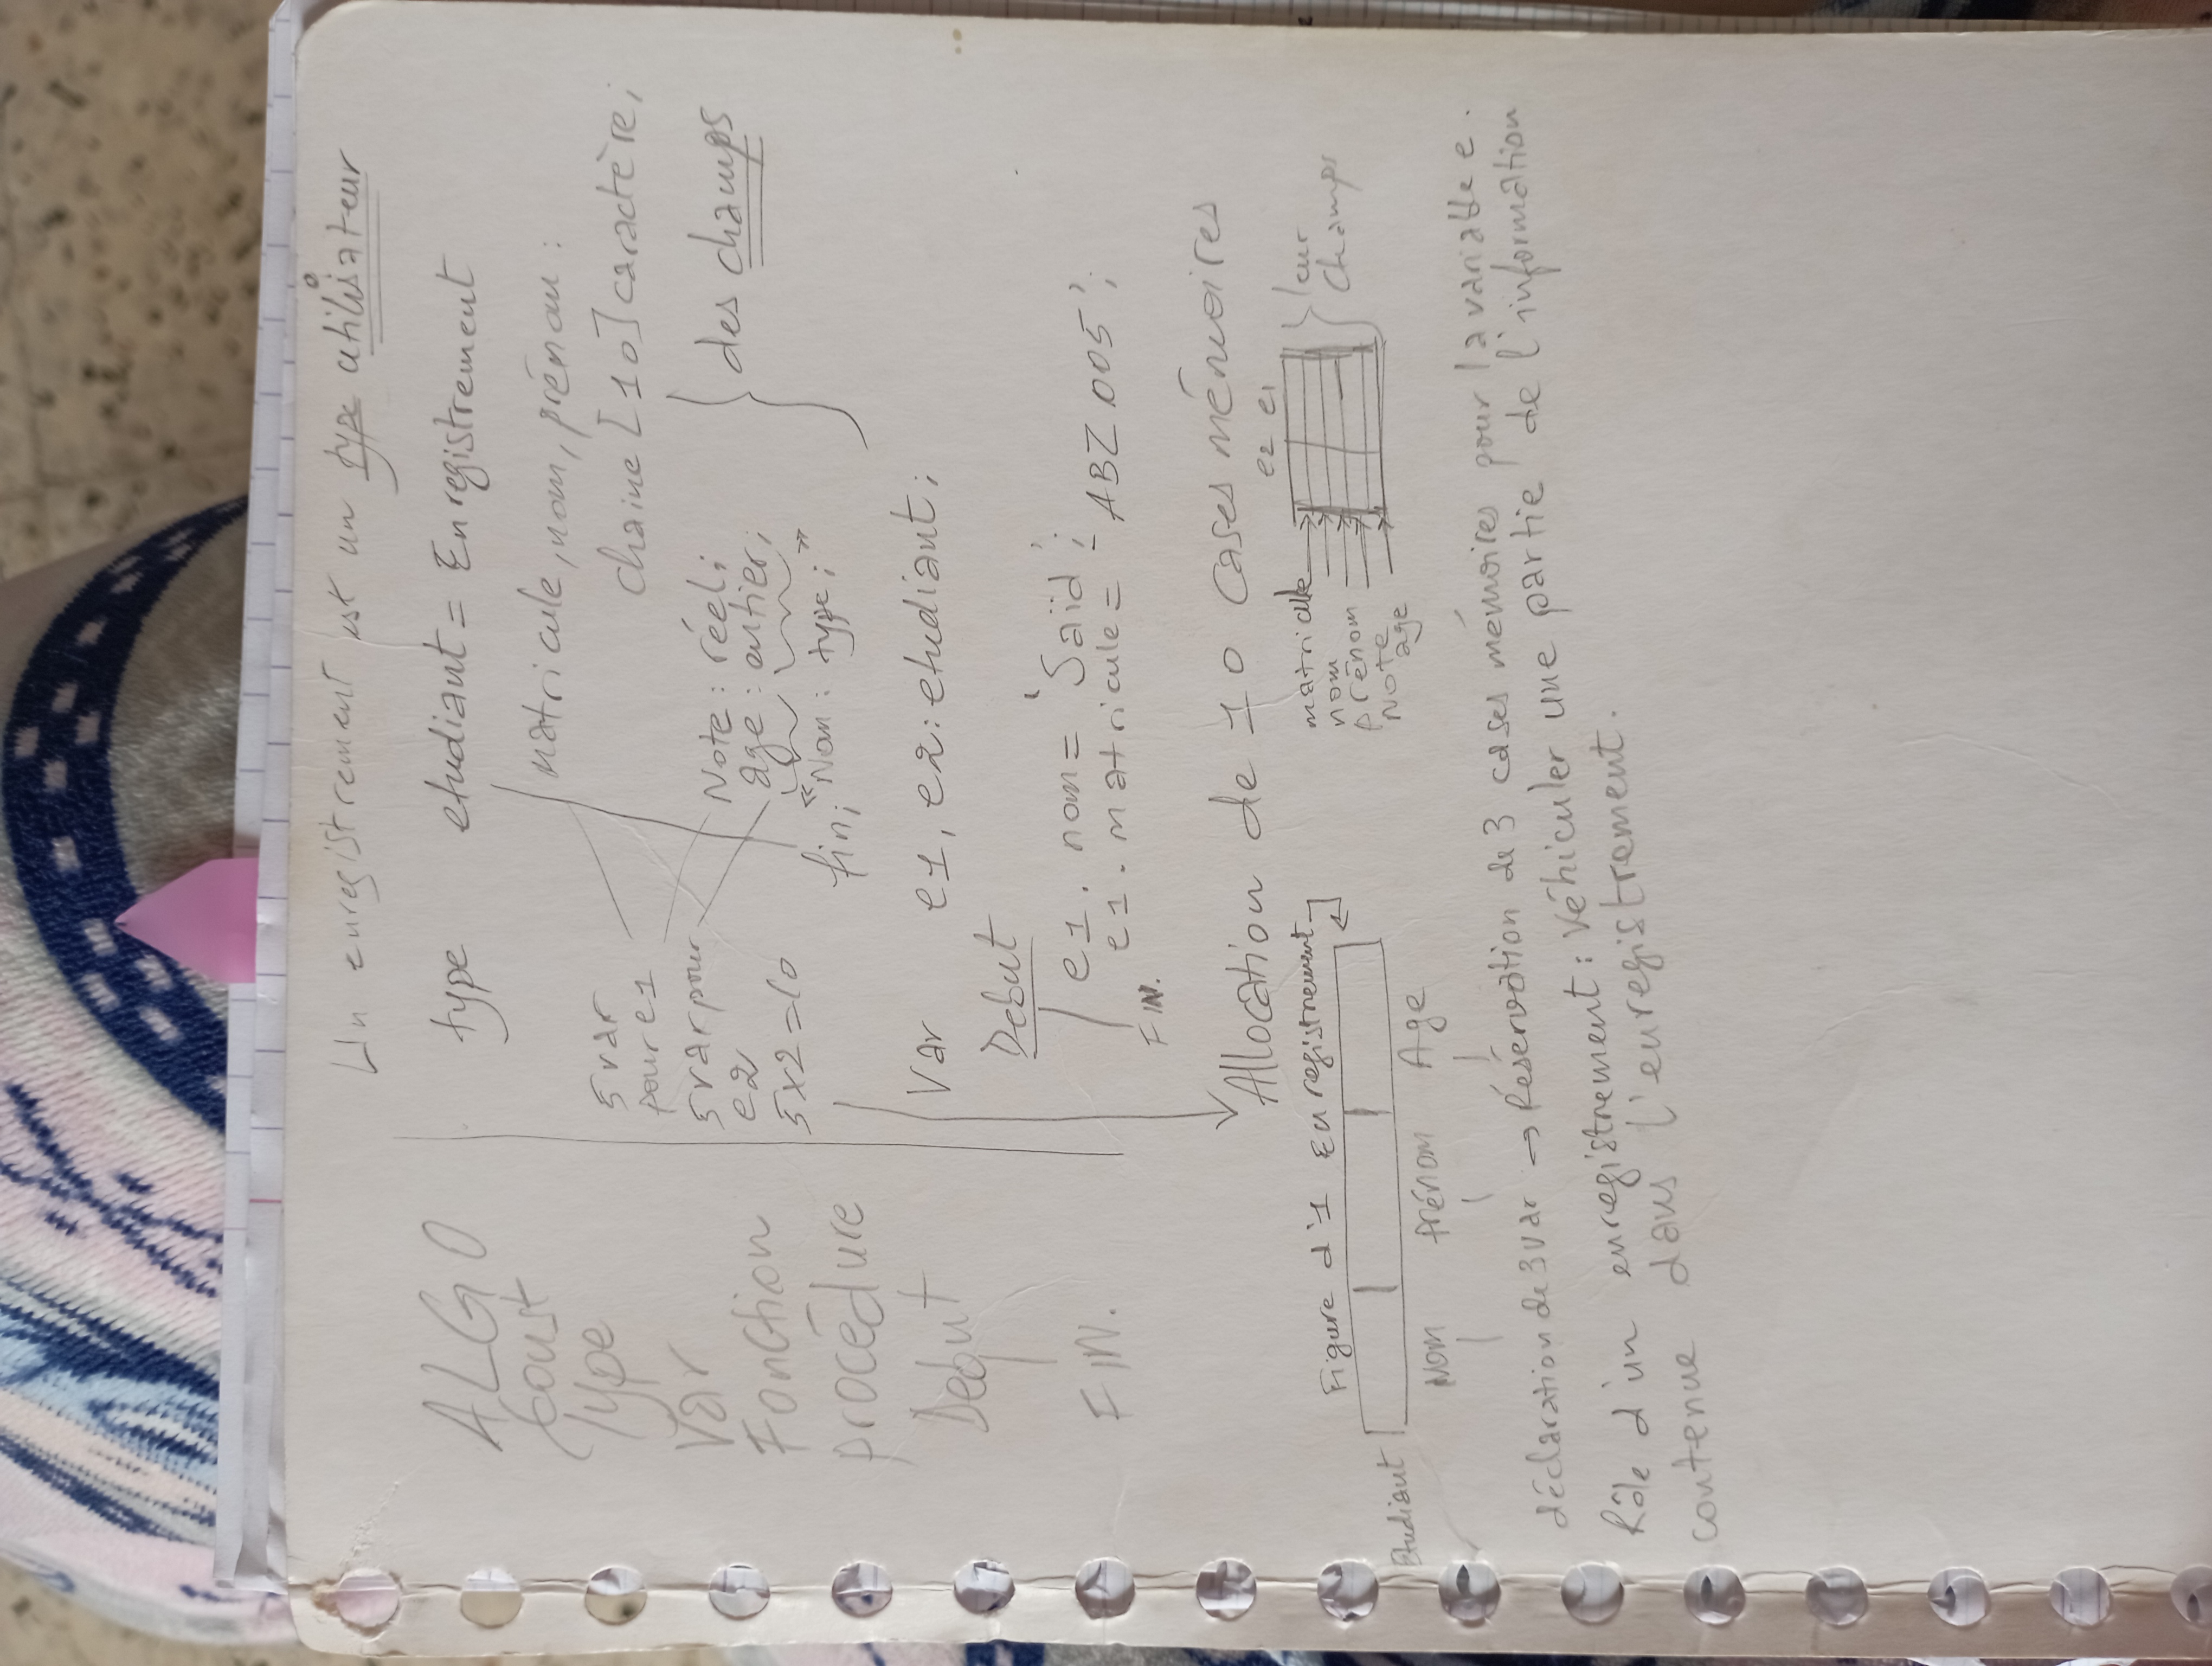 Un enregistrement est un type utilisateur
ALGO
Const
Type
Var
Fonction
procédure
Debut
FIN.
type etudiant = Enregistrement
matricule, nom, prénom :
chaine [10] caractère;
5 var
pour e1
5 var pour
e2
5x2=10
Note : réel;
age : entier;
des champs
"Nom : type;"
fin;
Var e1, e2: etudiant;
Debut
e1. nom = 'Saïd';
e1. matricule = 'ABZ005';
FIN.
Allocation de 10 cases mémoires
Figure d'1 Enregistrement
Etudiant
Nom Prénom Age
e2 e1
matricule
nom
prénom
Note
age
leur
champs
déclaration de 3 var → Réservation de 3 cases mémoires pour la variable e.
Rôle d'un enregistrement : Véhiculer une partie de l'information
contenue dans l'enregistrement.